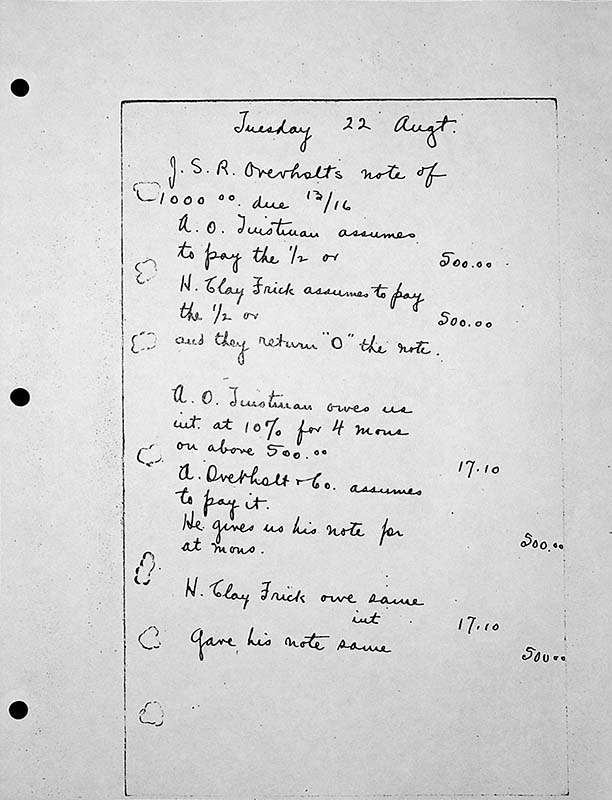 Tuesday 22 Augt.
J. S. R. Overholts note of
1000 00. due 13/16
A. O. Tinstman assumes
to pay the 1/2 or 500.00
H. Clay Frick assumes to pay
the 1/2 or 500.00
and they return "O" the note.
A. O. Tinstman owes us
int. at 10% for 4 mons
on above 500.00 17.10
A. Overholt & Co. assumes
to pay it.
He gives us his note for 500.00
at mons.
H. Clay Frick owe same
int 17.10
Gave his note same 500 00